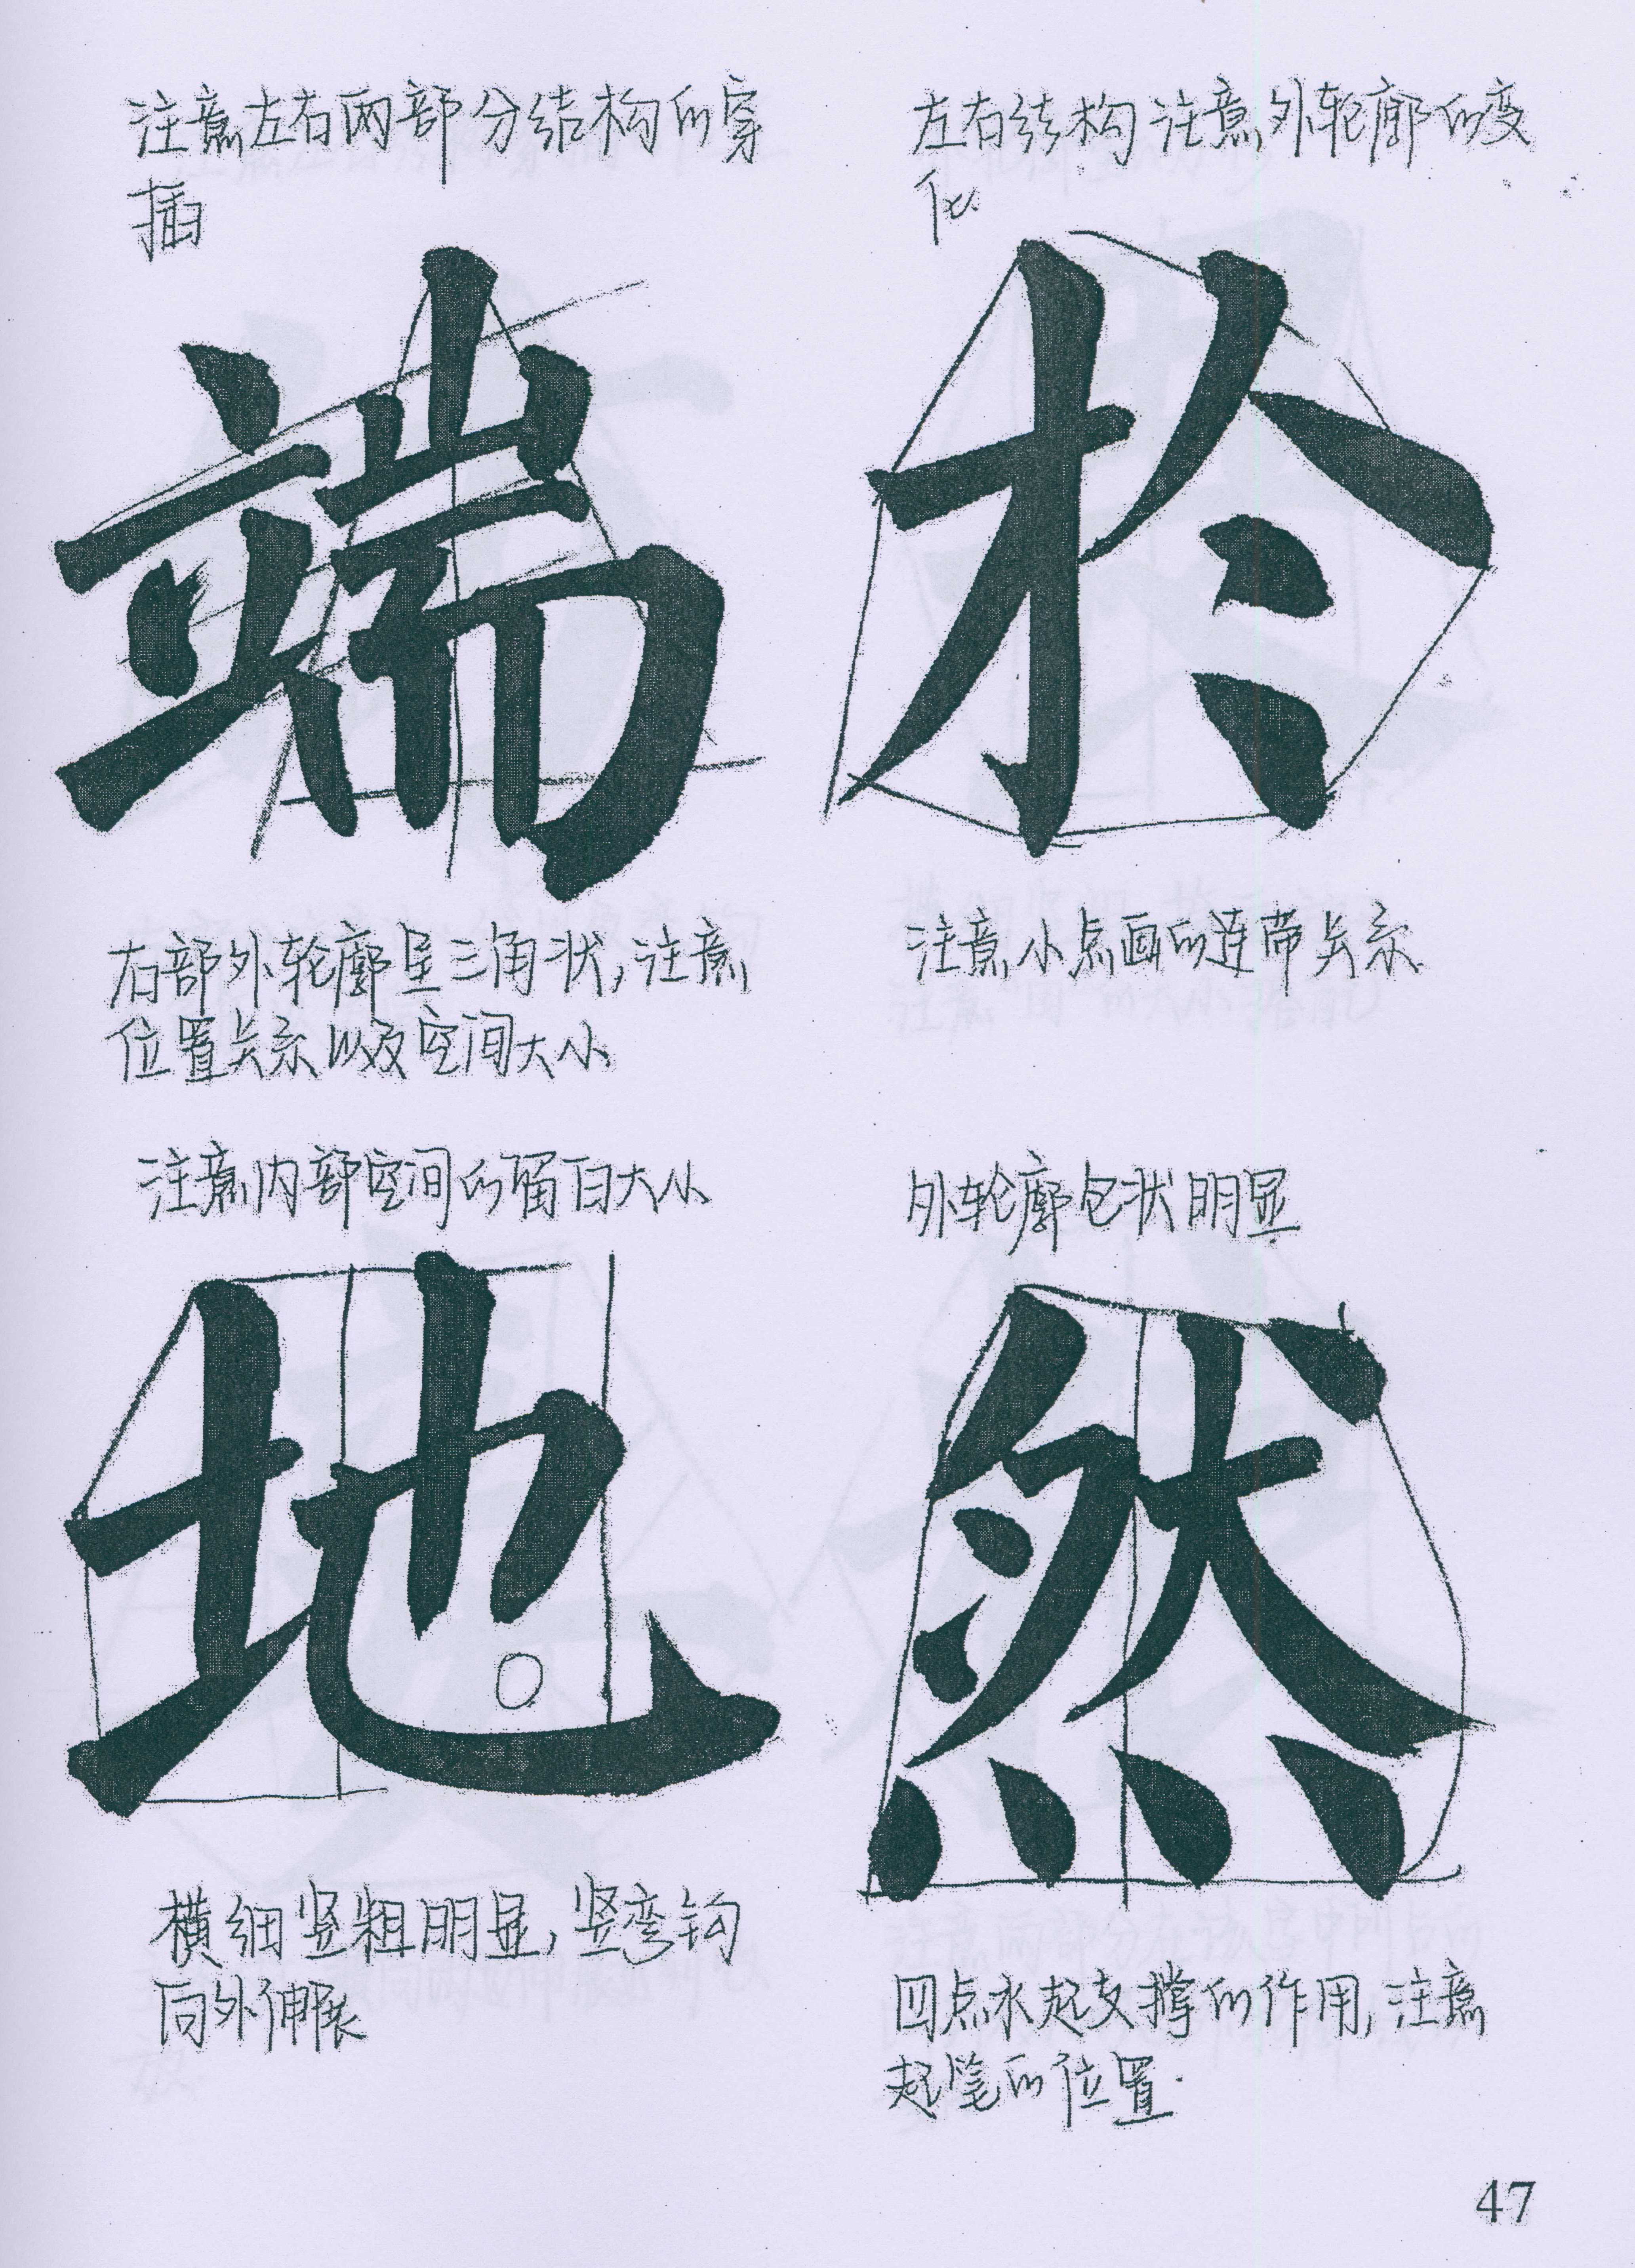 注意左右两部分结构的穿
插
端
右部外轮廓呈三角状,注意
位置关系以及空间大小
左右结构注意外轮廓的变
化
於
注意小点画的连带关系
注意内部空间的留白大小
地
横细竖粗明显,竖弯钩
向外伸展
外轮廓包状明显
然
四点水起支撑的作用,注意
起笔的位置.
47